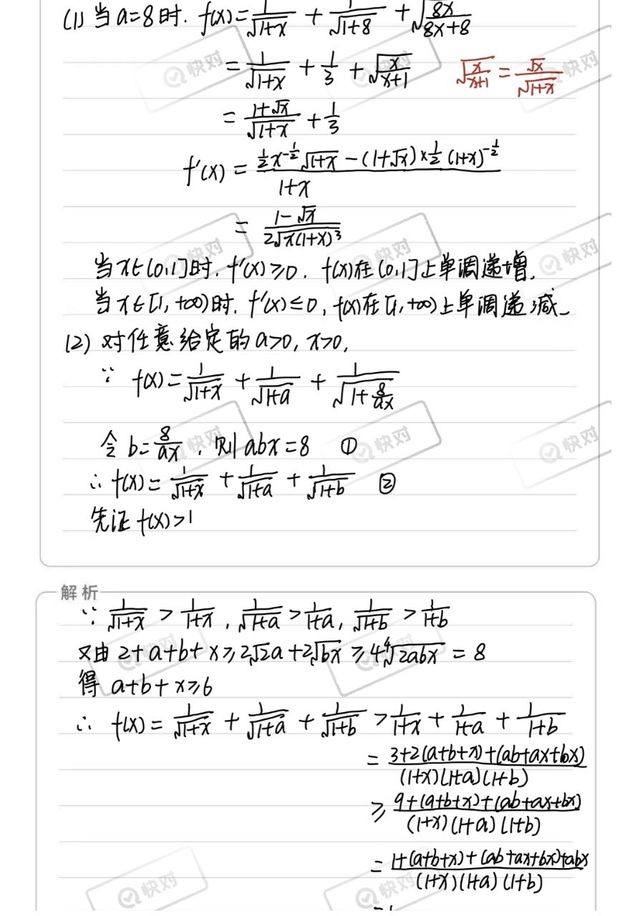 (1) 当a=8时. f(x)=1/√(1+x) + 1/√(1+8) + √(8x/(8x+8))
=1/√(1+x) + 1/3 + √(x/(x+1)) √(x/(x+1)) = √x/√(1+x)
= (1+√x)/√(1+x) + 1/3
f'(x) = (½x^(-½)√(1+x) - (1+√x)×½(1+x)^(-½))/(1+x)
= (1-√x)/(2√(x(1+x)³))
当x∈(0,1]时. f'(x)≥0. f(x)在(0,1]上单调递增.
当x∈[1,+∞)时. f'(x)≤0, f(x)在[1,+∞)上单调递减.
(2) 对任意给定的a>0, x>0,
∵ f(x)=1/√(1+x) + 1/√(1+a) + 1/√(1+8/(ax))
令b=8/(ax), 则abx=8 ①
∴ f(x)=1/√(1+x) + 1/√(1+a) + 1/√(1+b) ②
先证f(x)>1
解析
∵ 1/√(1+x) > 1/(1+x), 1/√(1+a) > 1/(1+a), 1/√(1+b) > 1/(1+b)
又由2+a+b+x≥2√(2a)+2√(bx)≥4⁴√(2abx)=8
得 a+b+x≥6
∴ f(x)=1/√(1+x) + 1/√(1+a) + 1/√(1+b) > 1/(1+x) + 1/(1+a) + 1/(1+b)
= (3+2(a+b+x)+(ab+ax+bx))/((1+x)(1+a)(1+b))
≥ (9+(a+b+x)+(ab+ax+bx))/((1+x)(1+a)(1+b))
= (1+(a+b+x)+(ab+ax+bx)+abx)/((1+x)(1+a)(1+b))
=1
快对
快对
快对
快对
快对
快对
快对
快对
快对